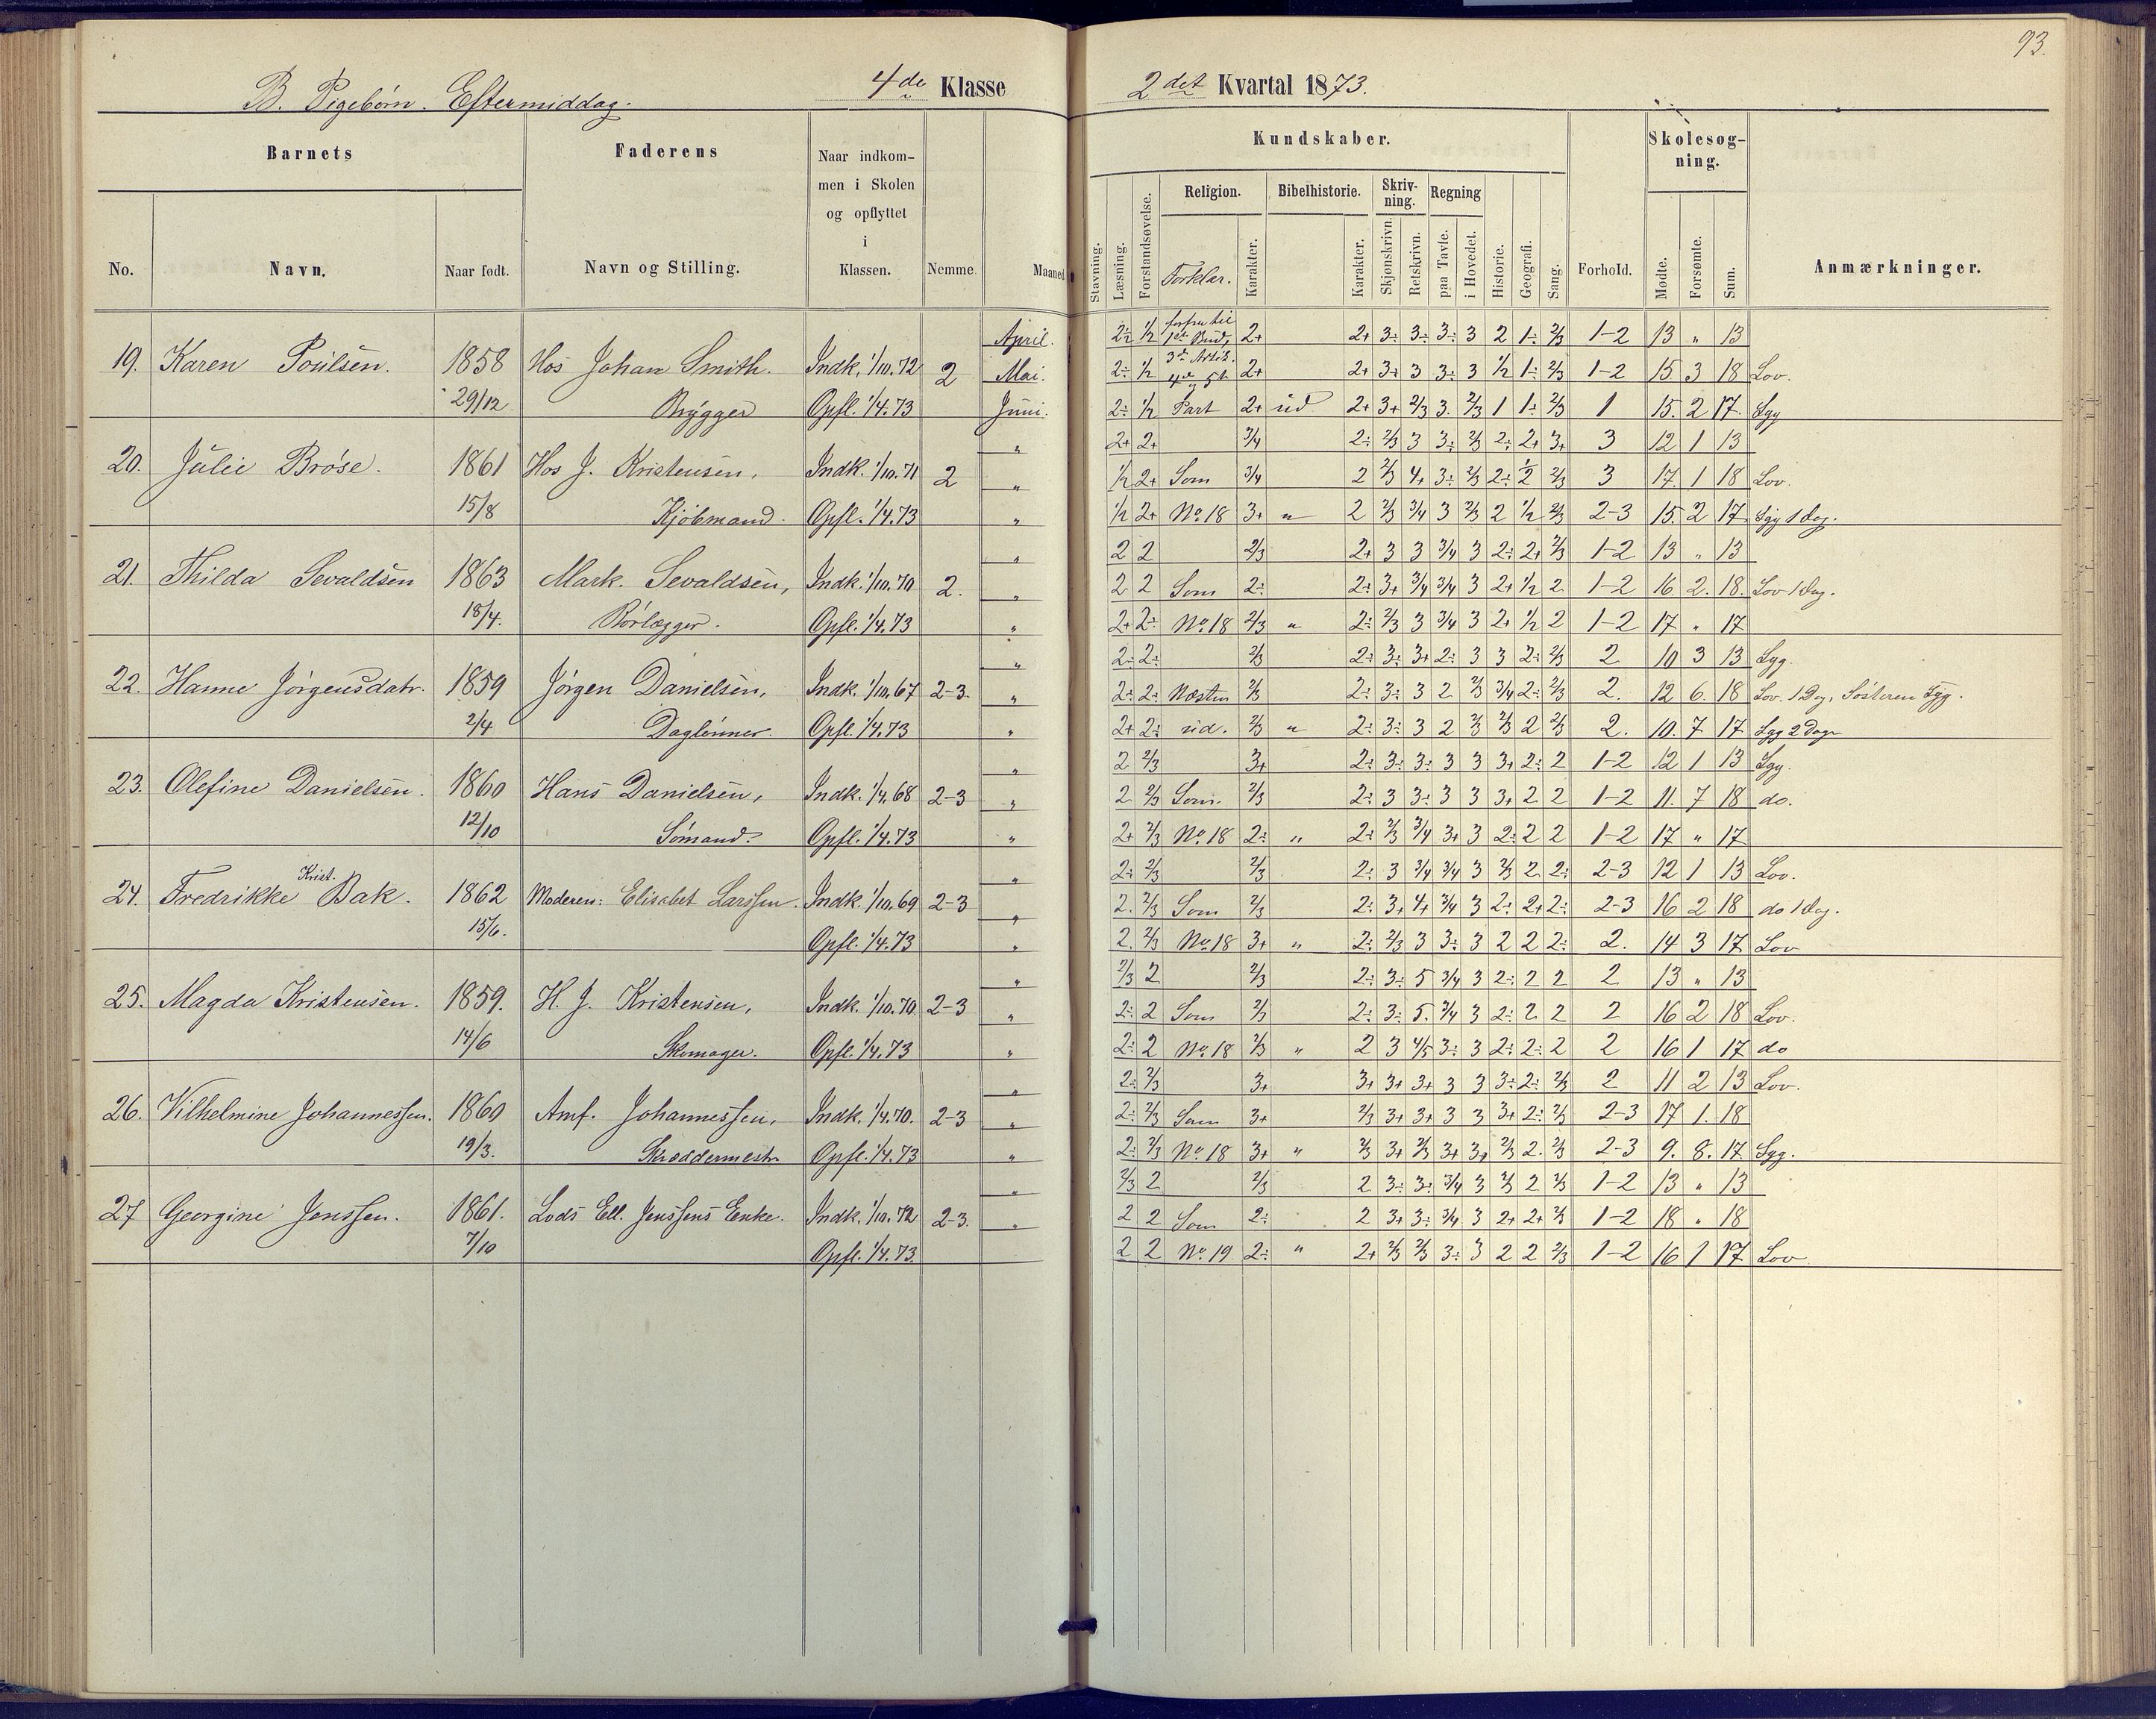 93.
B. Pigebørn. Eftermiddag. 4de Klasse 2det Kvartal 1873.
Barnets Faderens Naar indkommen i Skolen og opflyttet i Klassen. Nemme. Maaned Kundskaber. Forhold. Skolesogning. Anmærkninger.
No. Navn. Naar født. Navn og Stilling. Stavning. Læsning. Forstandsøvelse. Religion. Forklar. Karakter. Bibelhistorie. Karakter. Skrivning. Skjønskrivn. Retskrivn. Regning paa Tavle. i Hovedet. Historie. Geografi. Sang. Mødte. Forsømte. Sum.
19. Karen Poülsen. 1858 Hos Johan Smith. Indk. 1/10.72 2 April. 2÷ 1/2 2+ 2+ 3÷ 3÷ 3÷ 3 2 1÷ 2/3 1-2 13 " 13
Mai. 2÷ 1/2 3de Artik. 4de og 5te 2+ 2+ 3+ 3 3÷ 3 1/2 1÷ 2/3 1-2 15 3 18 Lov.
29/12 Brygger Opfl. 1/4.73 Juni. 2÷ 1/2 Part 2+ ud 2+ 3+ 2/3 3. 2/3 1 1÷ 2/3 1 15. 2 17. Syg
20. Julie Brøse. 1861 Hos J. Kristensen, Indk. 1/10.71 2 " 2+ 2+ 3/4 2÷ 2/3 3 3÷ 2/3 2÷ 2+ 3+ 3 12 1 13
" 1/2 2+ Som 3/4 2 2/3 4+ 3÷ 2/3 2÷ 1/2 2/3 3 17 1 18 Lov.
15/8 Kjøbmand. Opfl. 1/4.73 " 1/2 2+ No. 18 3+ " 2 2/3 3/4 3 2/3 2 1/2 2/3 2-3 15. 2 17. Syg 1 Dag.
21. Thilda Sevaldsen 1863 Mark. Sevaldsen, Indk. 1/10.70 2. " 2 2 2/3 2+ 3 3 3/4 3 2÷ 2+ 2/3 1-2 13 " 13
" 2 2 Som 2÷ 2÷ 3+ 3/4 3/4 3 2+ 1/2 2 1-2 16 2. 18. Lov 1 Dag.
18/4. Rørlægger. Opfl. 1/4.73 " 2+ 2÷ No. 18 2/3 " 2÷ 2/3 3 3/4 3 2+ 1/2 2 1-2 17 " 17
22. Hanne Jørgensdatr. 1859 Jørgen Danielsen, Indk. 1/10.67 2-3. " 2÷ 2÷ 2/3 2÷ 3÷ 3+ 2÷ 3 3 2÷ 2/3 2 10 3 13 Syg.
" 2÷ 2÷ Næsten 2/3 2÷ 3÷ 3 2 2/3 3/4 2÷ 2/3 2. 12 6. 18 Lov. 1 Dag, Søsteren Syg.
2/4 Daglønner. Opfl. 1/4.73 " 2+ 2÷ ud. 2/3 " 2÷ 3÷ 3 2 2/3 2/3 2 2/3 2. 10. 7 17 Syg 2 Dage
23. Olefine Danielsen. 1860 Hans Danielsen, Indk. 1/4.68 2-3 " 2 2/3 3+ 2÷ 3÷ 3÷ 3 3 3+ 2÷ 2 1-2 12 1 13 Syg.
" 2 2/3 Som 2/3 2÷ 3 3÷ 3 3 3+ 2 2 1-2 11. 7 18 do.
12/10 Sømand. Opfl. 1/4.73 " 2+ 2/3 No. 18 2÷ " 2÷ 2/3 3/4 3+ 3 2÷ 2 2 1-2 17 " 17
24. Fredrikke Krist. Bak. 1862 Moderen: Elisabet Larssen. Indk. 1/10.69 2-3 " 2÷ 2/3 2/3 2÷ 3 3/4 3/4 3 2/3 2 2÷ 2-3 12 1 13 Lov.
" 2. 2/3 Som 2/3 2÷ 3+ 4+ 3/4 3 2÷ 2+ 2÷ 2-3 16 2 18 do 1 Dag.
15/6. Opfl. 1/4.73 " 2. 2/3 No. 18 3+ " 2÷ 2/3 3 3÷ 3 2 2 2÷ 2. 14 3 17 Lov
25. Magda Kristensen. 1859. H. J. Kristensen, Indk. 1/10.70 2-3 " 2/3 2 2/3 2÷ 3÷ 5 3/4 3 2÷ 2 2 2 13 " 13
" 2÷ 2 Som 2/3 2÷ 3÷ 5. 3/4 3 2÷ 2 2 2 16 2 18 Lov.
14/6 Skomager. Opfl. 1/4.73 " 2÷ 2 No. 18 2/3 " 2 3 4/5 3÷ 3 2÷ 2÷ 2 2 16 1 17 do
26. Vilhelmine Johannessen. 1860 Amf. Johannessen, Indk. 1/4.70. 2-3 " 2÷ 2/3 3+ 3+ 3+ 3+ 3 3 3÷ 2÷ 2/3 2 11 2 13 Lov.
" 2÷ 2/3 Som 3+ 2/3 3+ 3+ 3 3 3+ 2÷ 2/3 2-3 17 1. 18
19/3. Skræddermestr Opfl. 1/4.73 " 2÷ 2/3 No. 18 3+ " 2/3 3+ 2/3 3+ 3+ 2/3 2. 2/3 2-3 9. 8. 17. Syg.
27 Georgine Jenssen. 1861. Lods Ell. Jenssens Enke. Indk. 1/10.72 2-3. " 2/3 2 2/3 2 3÷ 3÷ 3/4 3 2/3 2 2/3 1-2 13 " 13
" 2 2 Som 2÷ 2 3+ 3÷ 3/4 3 2+ 2+ 2/3 1-2 18 " 18
7/10 Opfl. 1/4.73. 2 2 No. 19 2÷ " 2+ 2/3 2/3 3÷ 3 2 2 2/3 1-2 16 1 17 Lov